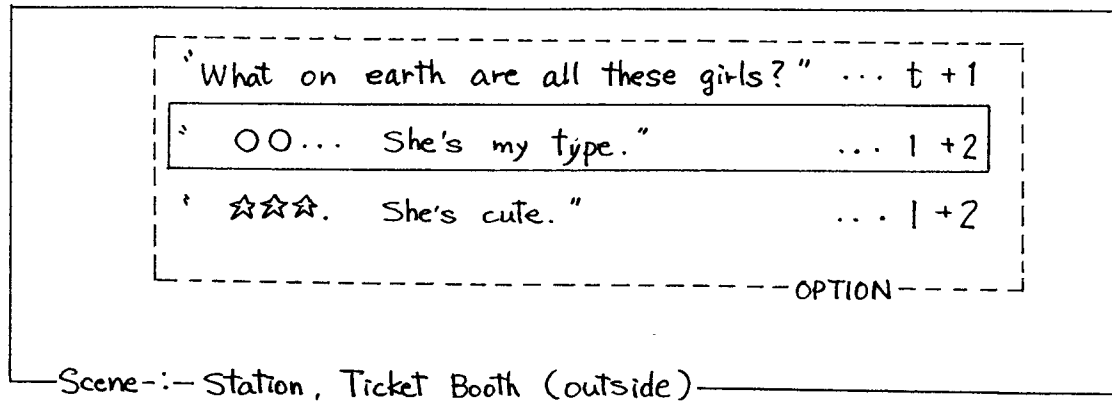 "What on earth are all these girls?" ... t +1
" ○○... She's my type." ... 1 +2
" ☆☆☆. She's cute." ... 1 +2
OPTION
Scene-:- Station, Ticket Booth (outside)